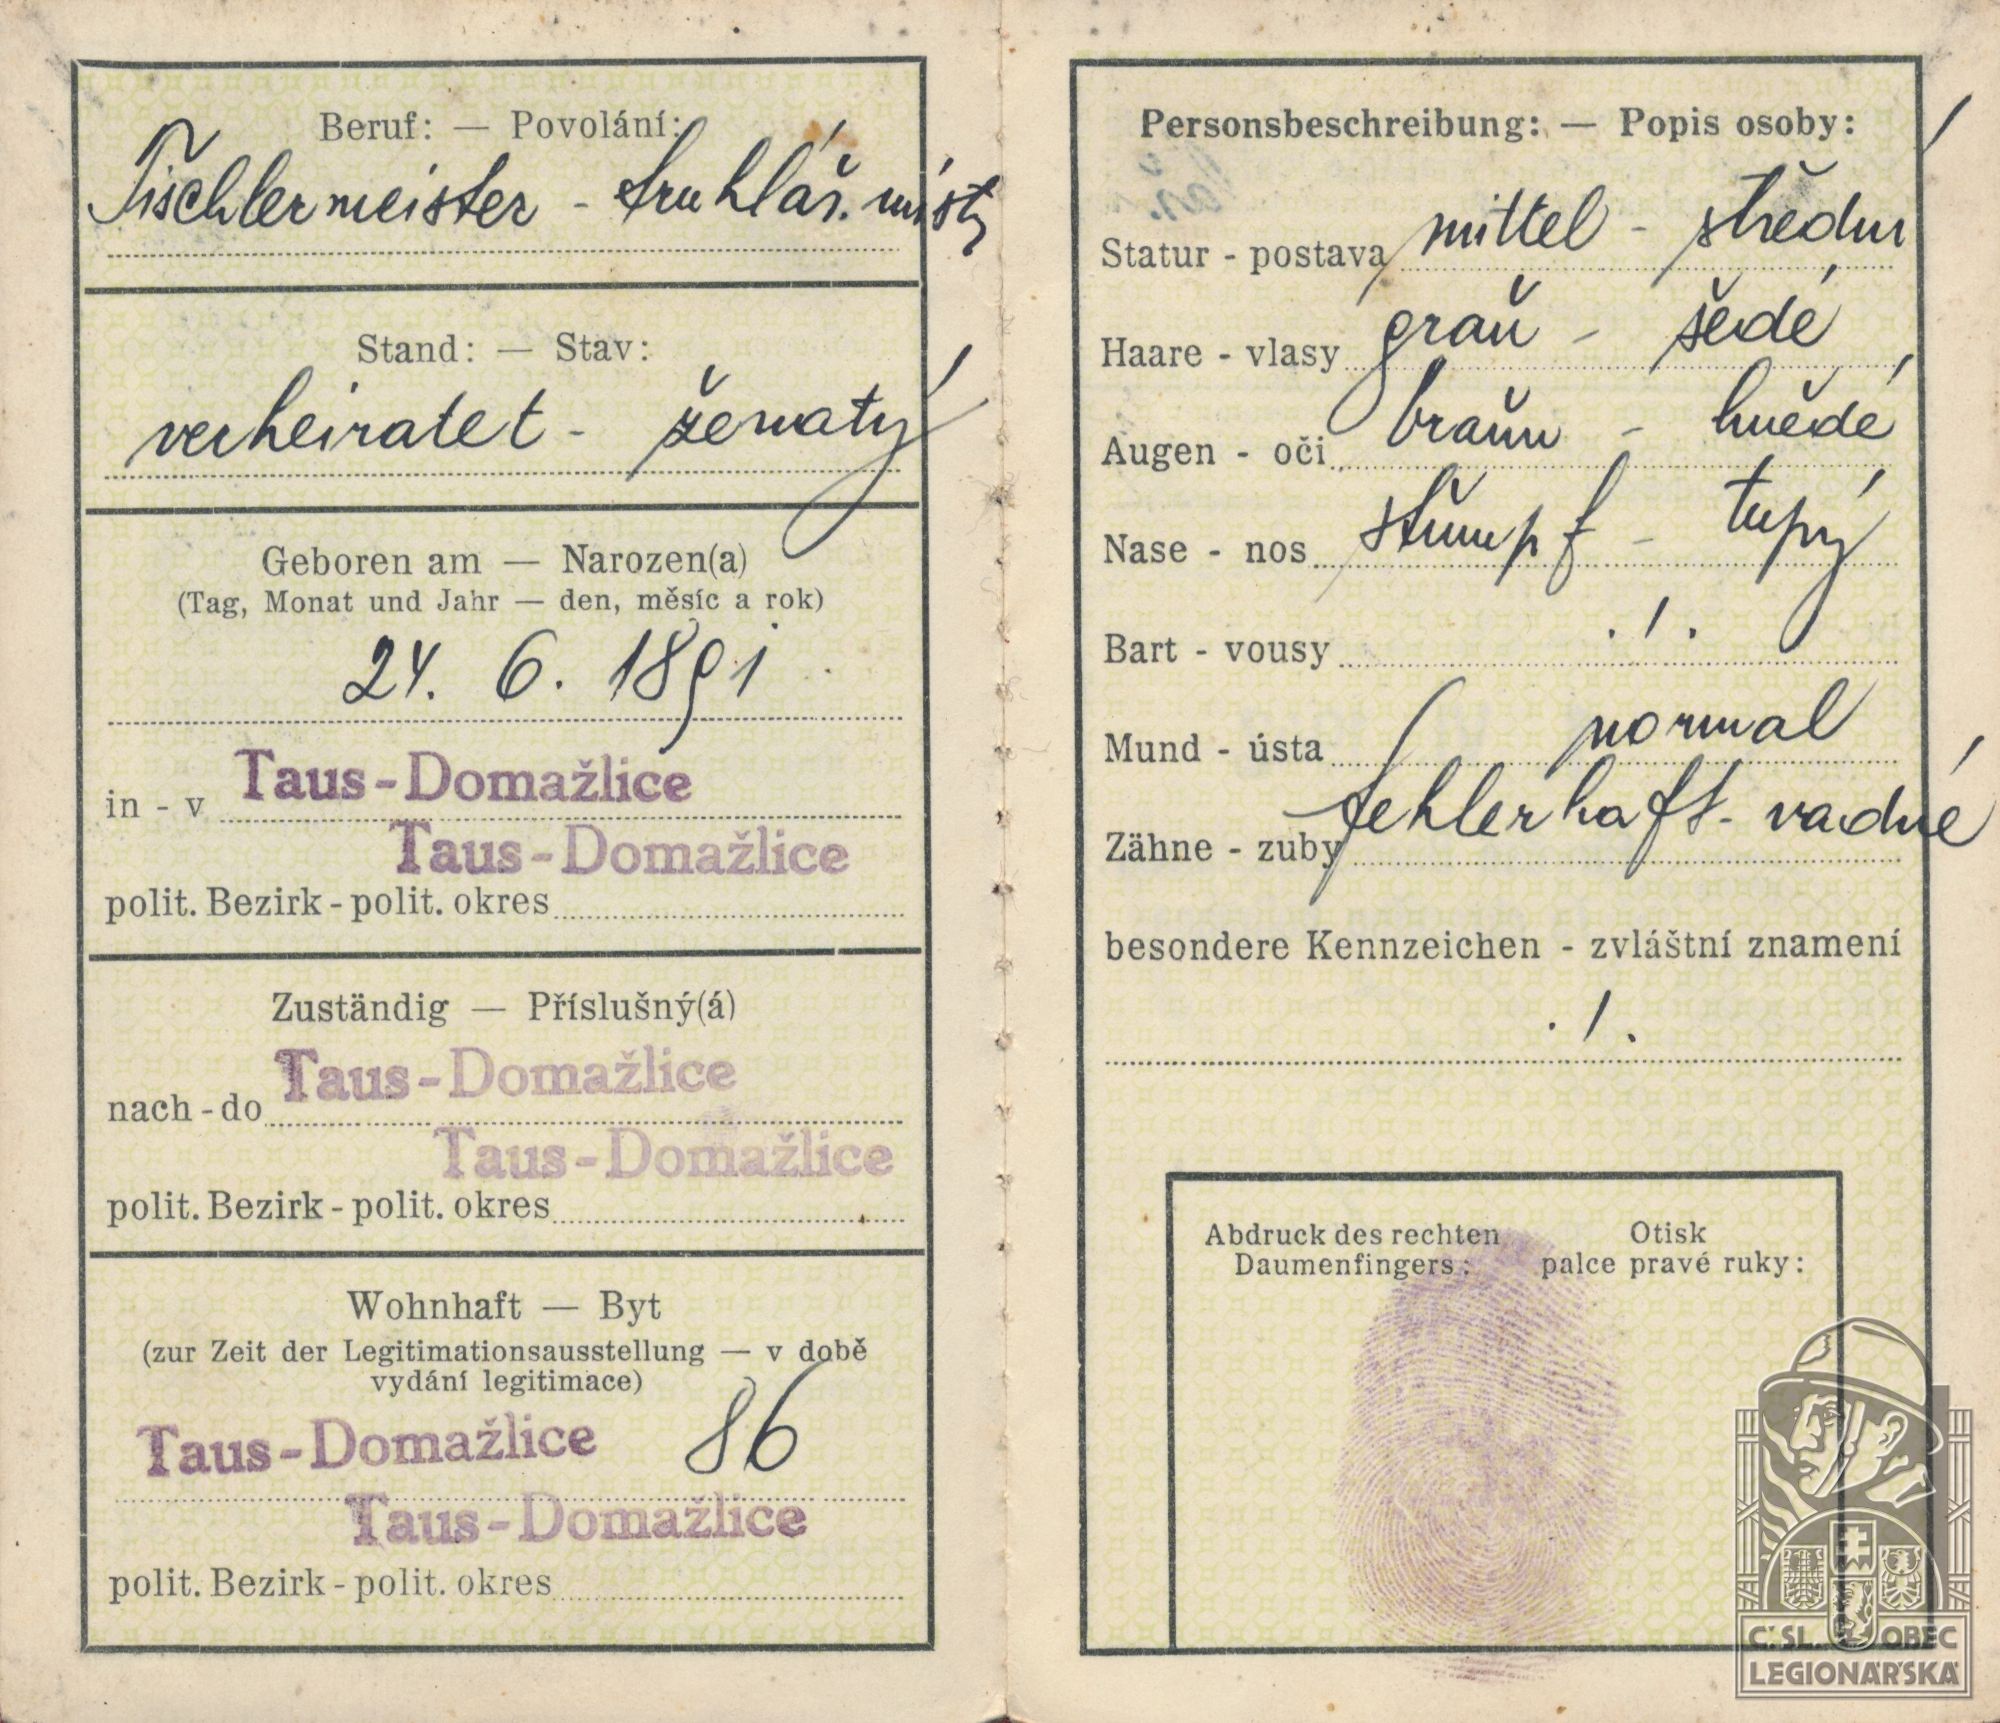 Beruf: — Povolání:
Tischlermeister - truhlář. mistr
Stand: — Stav:
verheiratet - ženatý
Geboren am — Narozen(a)
(Tag, Monat und Jahr — den, měsíc a rok)
24. 6. 1891
in - v Taus-Domažlice
Taus-Domažlice
polit. Bezirk - polit. okres
Zuständig — Příslušný(á)
nach - do Taus-Domažlice
Taus-Domažlice
polit. Bezirk - polit. okres
Wohnhaft — Byt
(zur Zeit der Legitimationsausstellung — v době
vydání legitimace)
Taus-Domažlice 86
Taus-Domažlice
polit. Bezirk - polit. okres
Personsbeschreibung: — Popis osoby:
Statur - postava mittel - střední
Haare - vlasy grau - šedé
Augen - oči braun - hnědé
Nase - nos stumpf - tupý
Bart - vousy ./.
Mund - ústa normal
Zähne - zuby fehlerhaft - vadné
besondere Kennzeichen - zvláštní znamení
./.
Abdruck des rechten Otisk
Daumenfingers: palce pravé ruky:
Č. SL. OBEC
LEGIONÁŘSKÁ